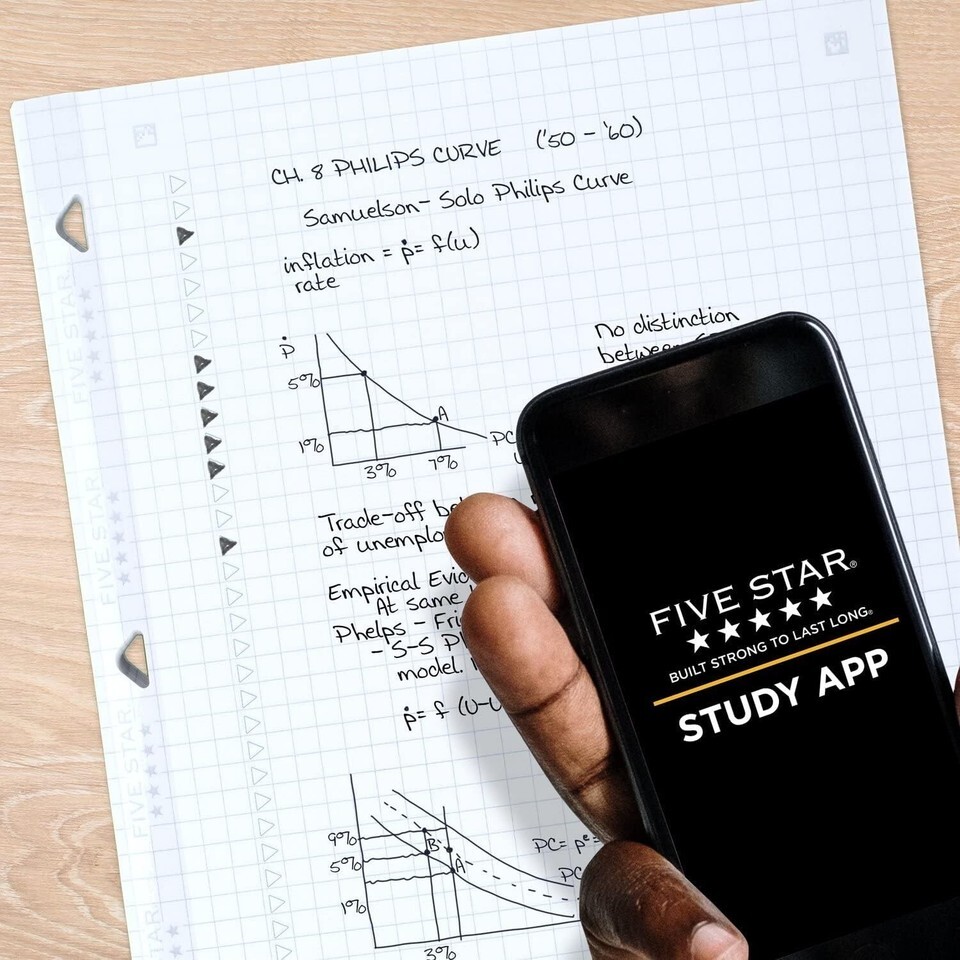 CH. 8 PHILIPS CURVE ('50 - '60)
Samuelson- Solo Philips Curve
inflation = ṗ= f(u)
rate
No distinction
between
ṗ
5%
A
1%
PC
3% 7%
Trade-off
of
Empirical
At same
Phelps -
- S-S
model.
ṗ= f (U-U
9%
B
5%
A
1%
PC= pᵉ=
PC
3%
FIVE STAR
FIVE STAR
FIVE STAR
FIVE STAR
FIVE STAR®
BUILT STRONG TO LAST LONG®
STUDY APP